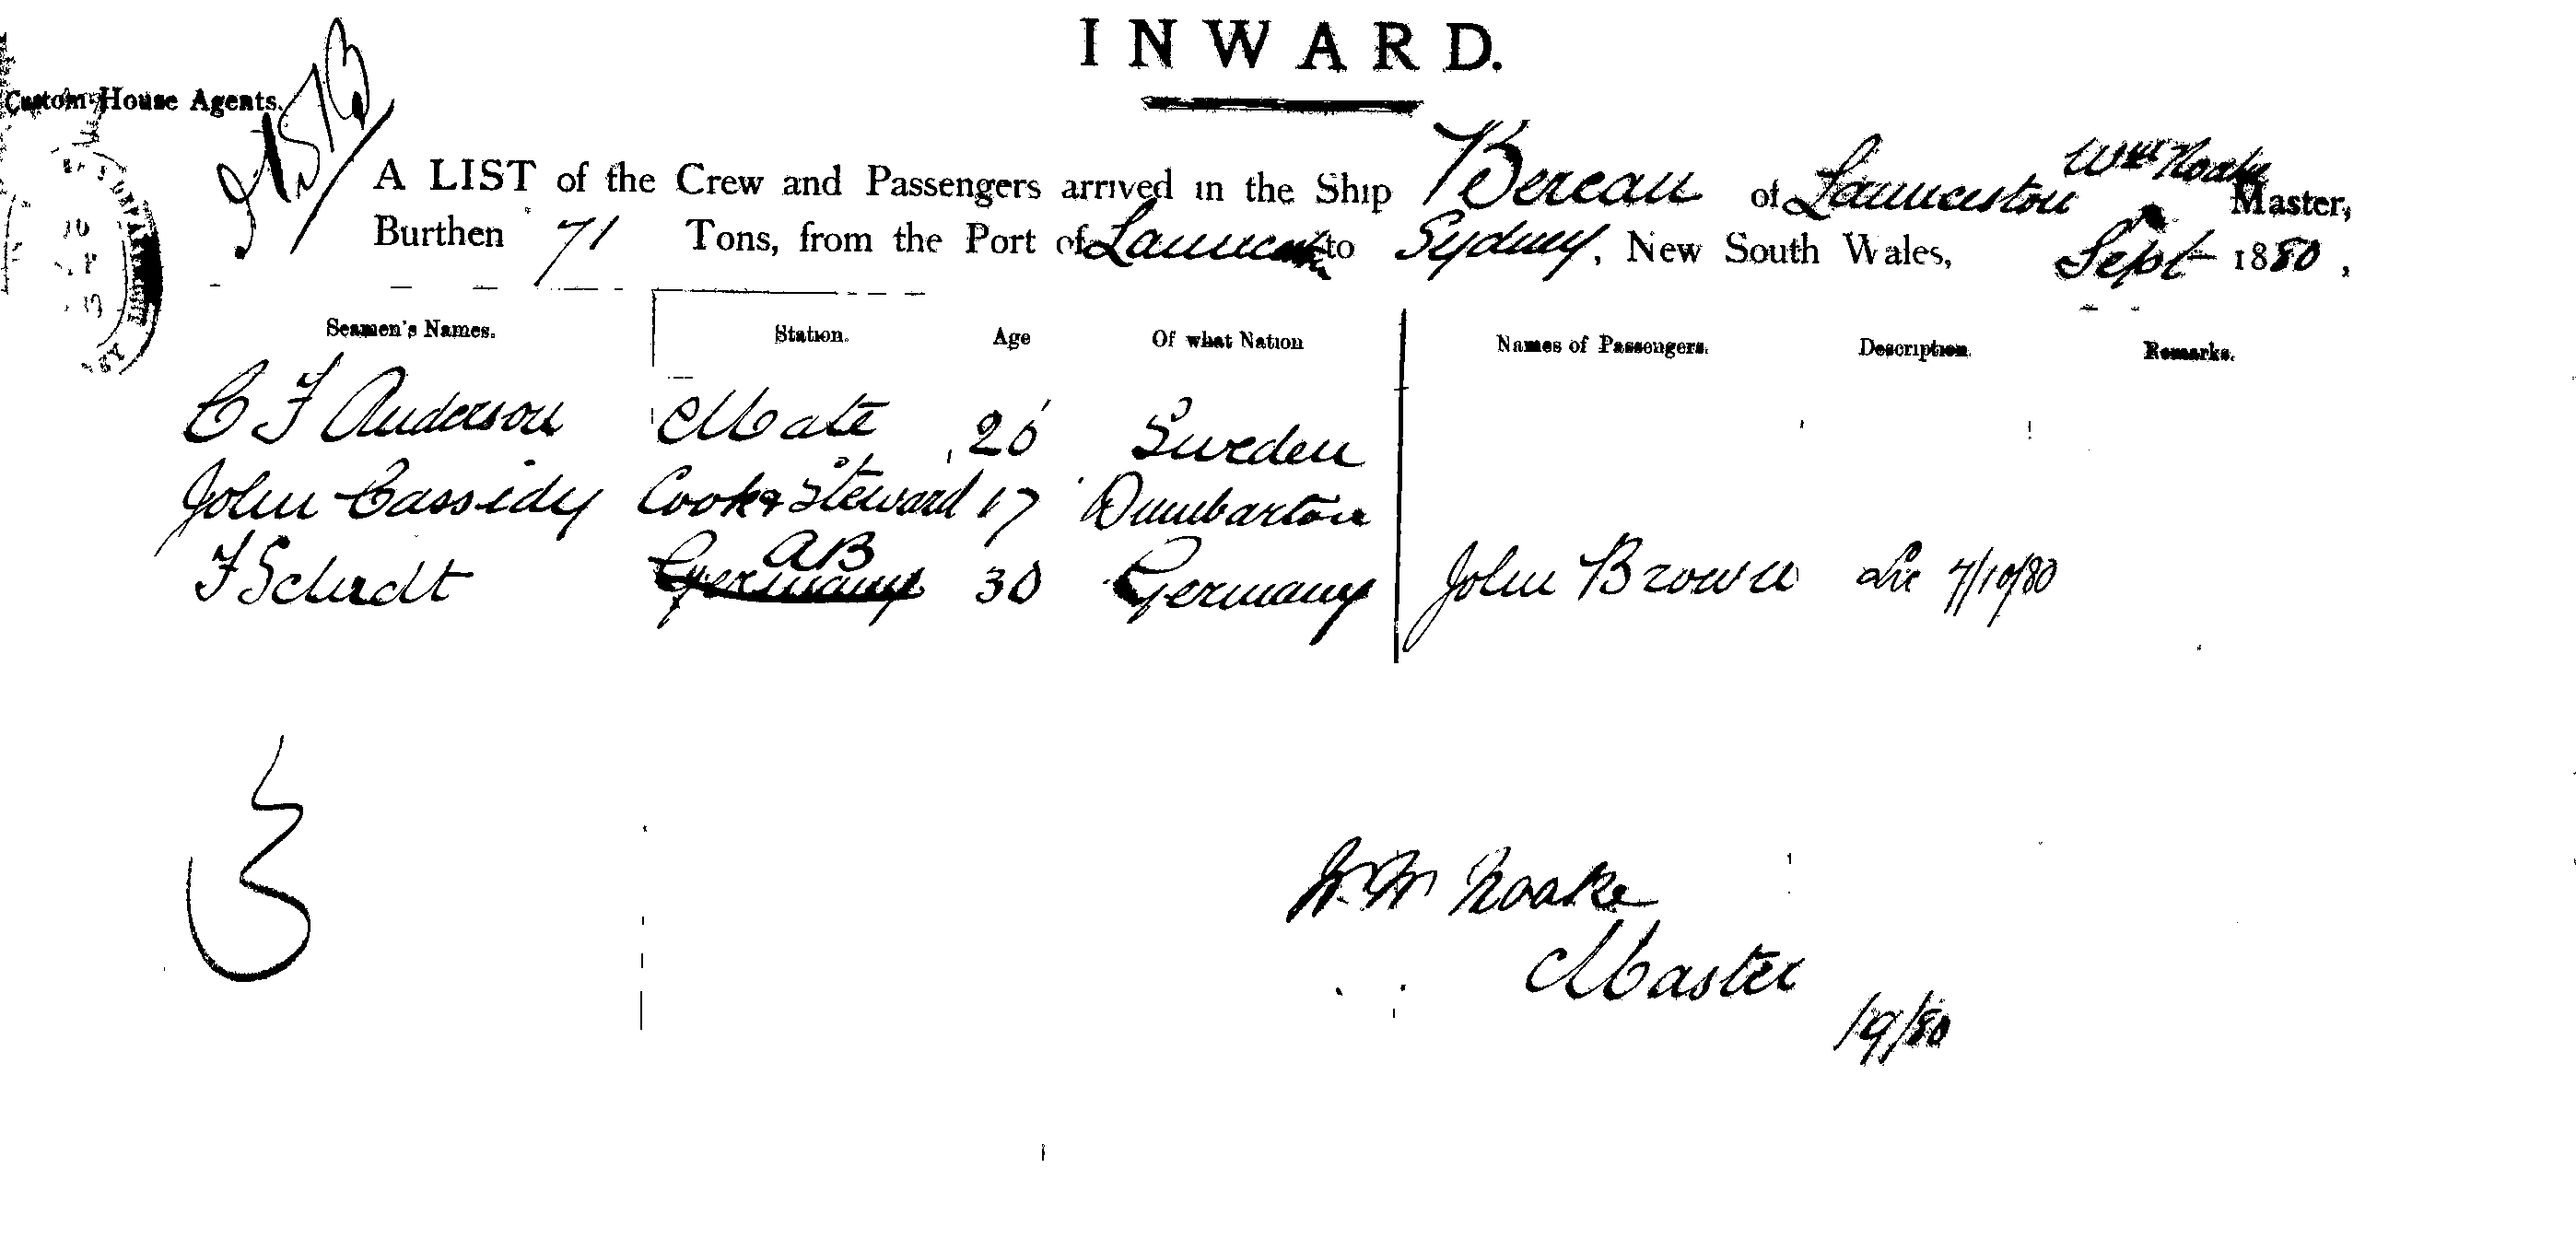 INWARD.
Custom House Agents.
A LIST of the Crew and Passengers arrived in the Ship Bereau of Launceston Wm Noake Master,
Burthen 71 Tons, from the Port of to Sydney, New South Wales, Sept 1880,
Seamen's Names. Station. Age Of what Nation Names of Passengers. Description. Remarks.
C F Anderson Mate 26 Sweden
John Cassidy Cook & Steward 17 Dumbarton
AB
F Schrdt Germany 30 Germany John Brown 7/10/80
3
W W Noake
Master
/9/80